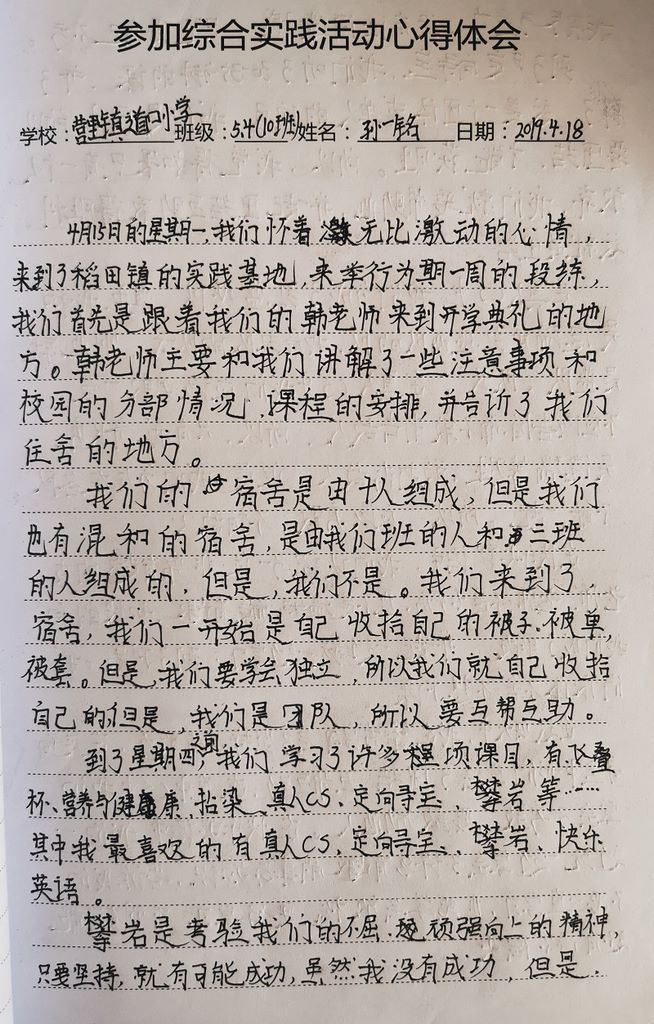 参加综合实践活动心得体会
学校：营里镇道口小学 班级：5.4(10班) 姓名： 孙一铭 日期：2019.4.18
4月15日的星期一,我们怀着无比激动的心情，
来到了稻田镇的实践基地,来举行为期一周的段练，
我们首先是跟着我们的韩老师来到开学典礼的地
方。韩老师主要和我们讲解了一些注意事项和
校园的分部情况、课程的安排,并告诉了我们
住舍的地方。
我们的宿舍是由十人组成，但是我们
也有混和的宿舍,是由我们班的人和三班
的人组成的，但是，我们不是。我们来到了
宿舍，我们一开始是自己收拾自己的被子、被单,
被套。但是,我们要学会独立，所以我们就自己收拾
自己的,但是，我们是团队，所以要互帮互助。
到了星期四之间,我们学习了许多程项课目,有飞叠
杯、营养与健康、拈染、真人CS、定向寻宝、攀岩等……
其中我最喜欢的有真人CS、定向寻宝、攀岩、快乐
英语。
攀岩是考验我们的不屈、顽强向上的精神，
只要坚持，就有可能成功,虽然我没有成功，但是，